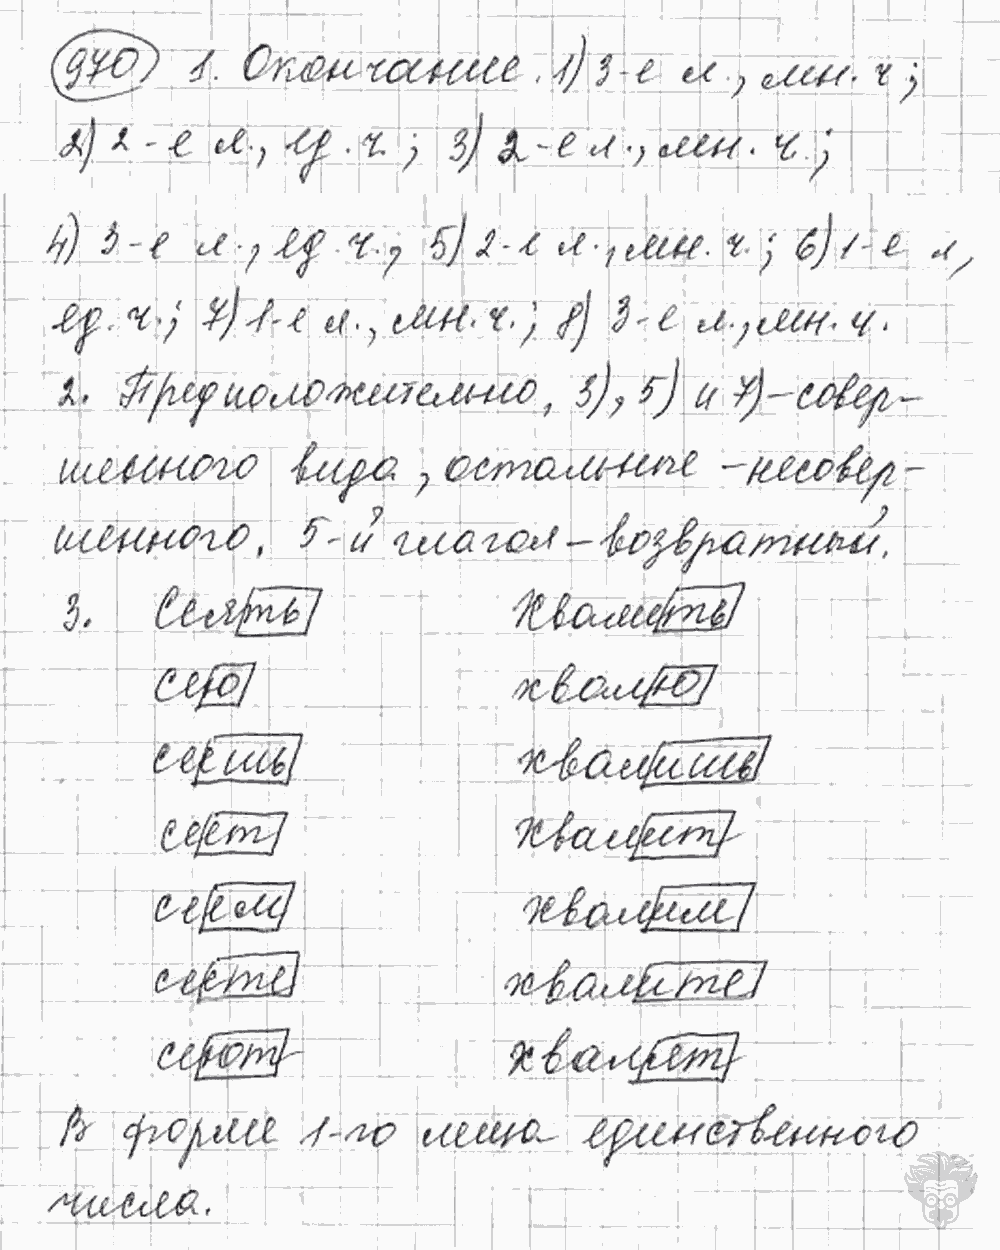 970 1. Окончание. 1) 3-е л., мн. ч.;
2) 2-е л., ед. ч.; 3) 2-е л., мн. ч.;
4) 3-е л., ед. ч., 5) 2-е л., мн. ч.; 6) 1-е л,
ед. ч.; 7) 1-е л., мн. ч.; 8) 3-е л., мн. ч.
2. Предположительно, 3), 5) и 7) – совер-
шенного вида, остальные – несовер-
шенного. 5-й глагол – возвратный.
3. Сеять Хвалить
сею хвалю
сеешь хвалишь
сеет хвалит
сеем хвалим
сеете хвалите
сеют хвалят
В форме 1-го лица единственного
числа.